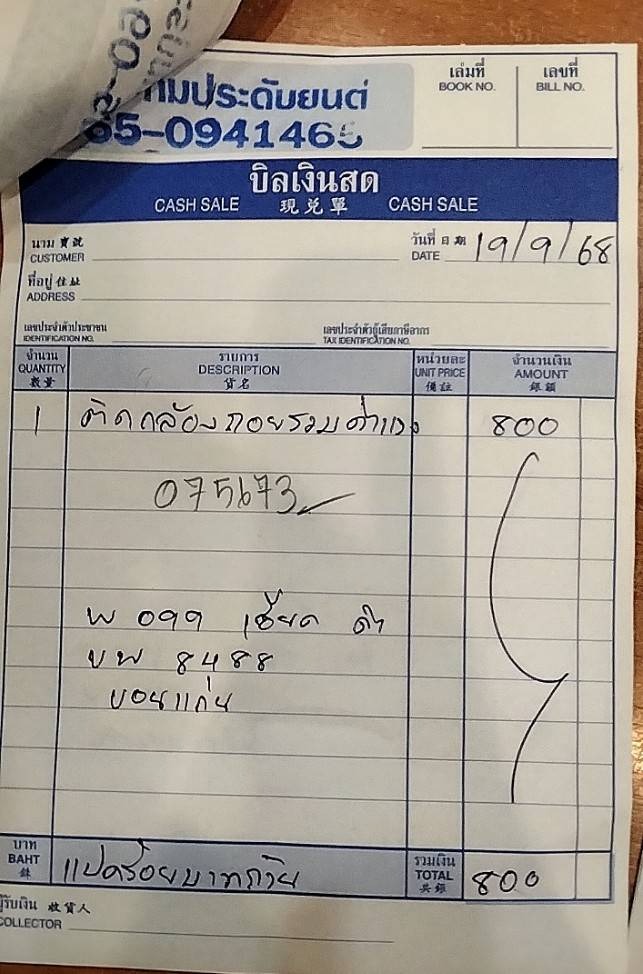 มประดับยนต์
65-0941465
เล่มที่ เลขที่
BOOK NO. BILL NO.
บิลเงินสด
CASH SALE 現兑單 CASH SALE
นาม 寶號
CUSTOMER
วันที่ 日期
DATE 19/9/68
ที่อยู่ 住址
ADDRESS
เลขประจำตัวประชาชน
IDENTIFICATION NO.
เลขประจำตัวผู้เสียภาษีอากร
TAX IDENTIFICATION NO.
จำนวน รายการ หน่วยละ จำนวนเงิน
QUANTITY DESCRIPTION UNIT PRICE AMOUNT
數量 貨名 備註 銀額
1 ติดกล้องถอยรวมค่าแรง 800
075673
พ 099 ดำ
ขพ 8488
ขอนแก่น
บาท แปดร้อยบาทถ้วน รวมเงิน 800
BAHT TOTAL
銖 共銀
ผู้รับเงิน 收貨人
COLLECTOR